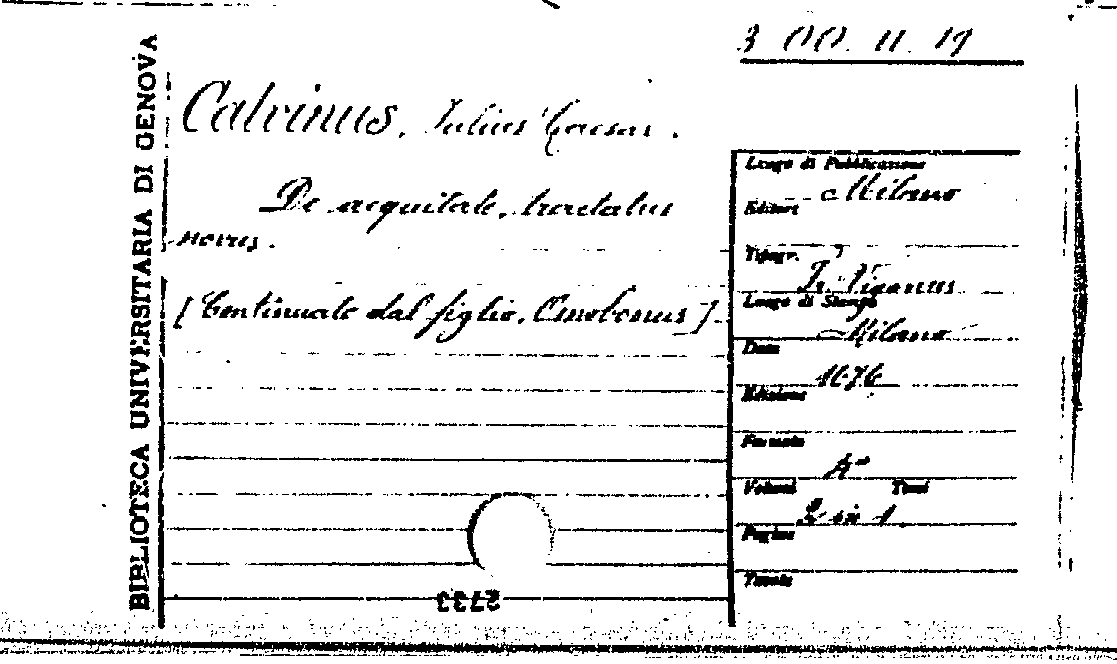 3 OO. II. 19
BIBLIOTECA UNIVERSITARIA DI GENOVA
Calvinus, Iulius Caesar.
De aequitate, tractatus
novus.
[Continuate dal figlio, Omobonus]
Luogo di Pubblicazione
Milano
Editore
Tipogr.
Fr. Viganus
Luogo di Stampa
Milano
Data
1676
Edizione
Formato
4°
Volumi Tomi
2 in 1
Pagine
Tavole
2733